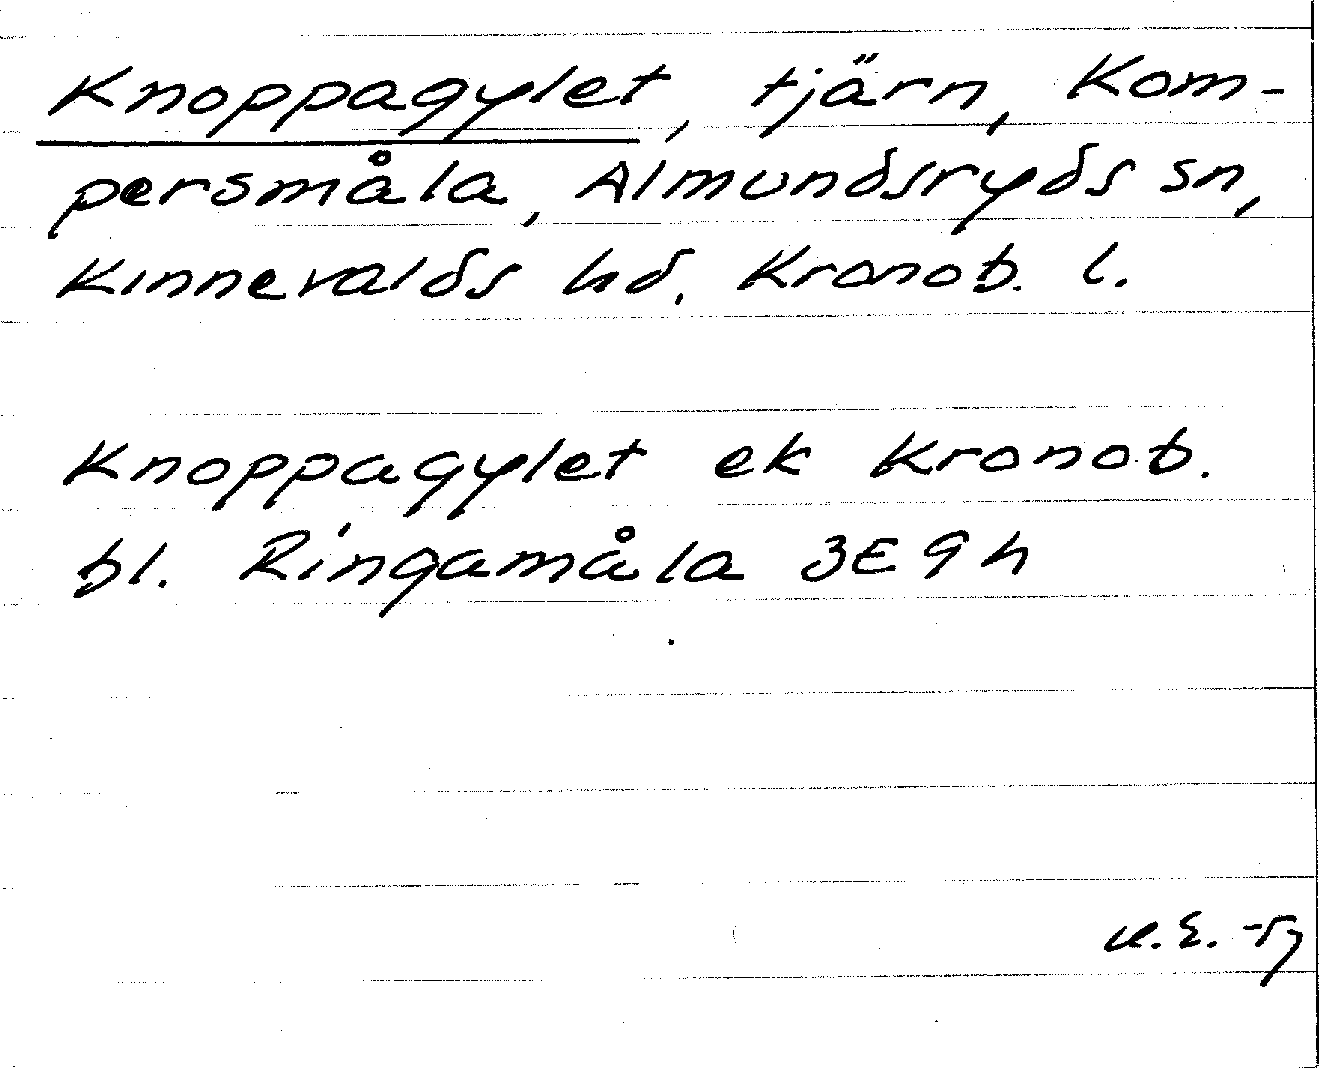 Knoppagylet, tjärn, Kom-
persmåla, Almundsryds sn,
Kinnevalds hd. Kronob. l.
Knoppagylet ek Kronob.
bl. Ringamåla 3E 9h